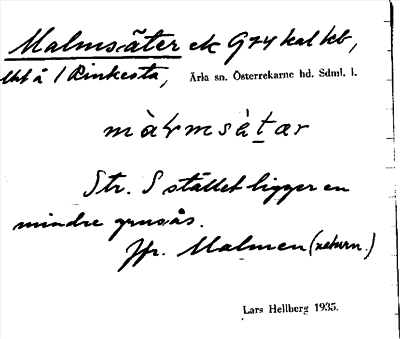 Malmsäter ek G74 kal kb,
lht å / Rinkesta, Ärla sn. Österrekarne hd. Sdml. l.
màɽmsèṯær
Str. S stället ligger en
mindre grusås.
Jfr. Malmen (naturn.)
Lars Hellberg 1935.